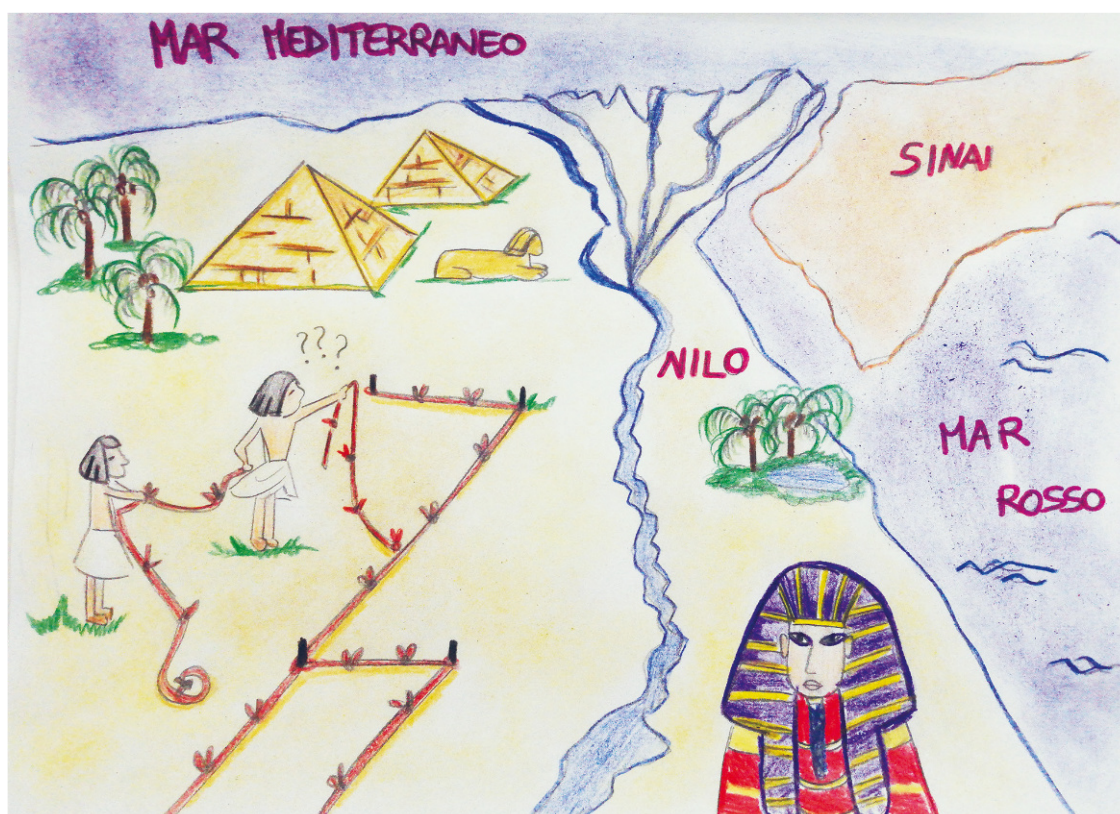 MAR MEDITERRANEO
SINAI
???
NILO
MAR
ROSSO